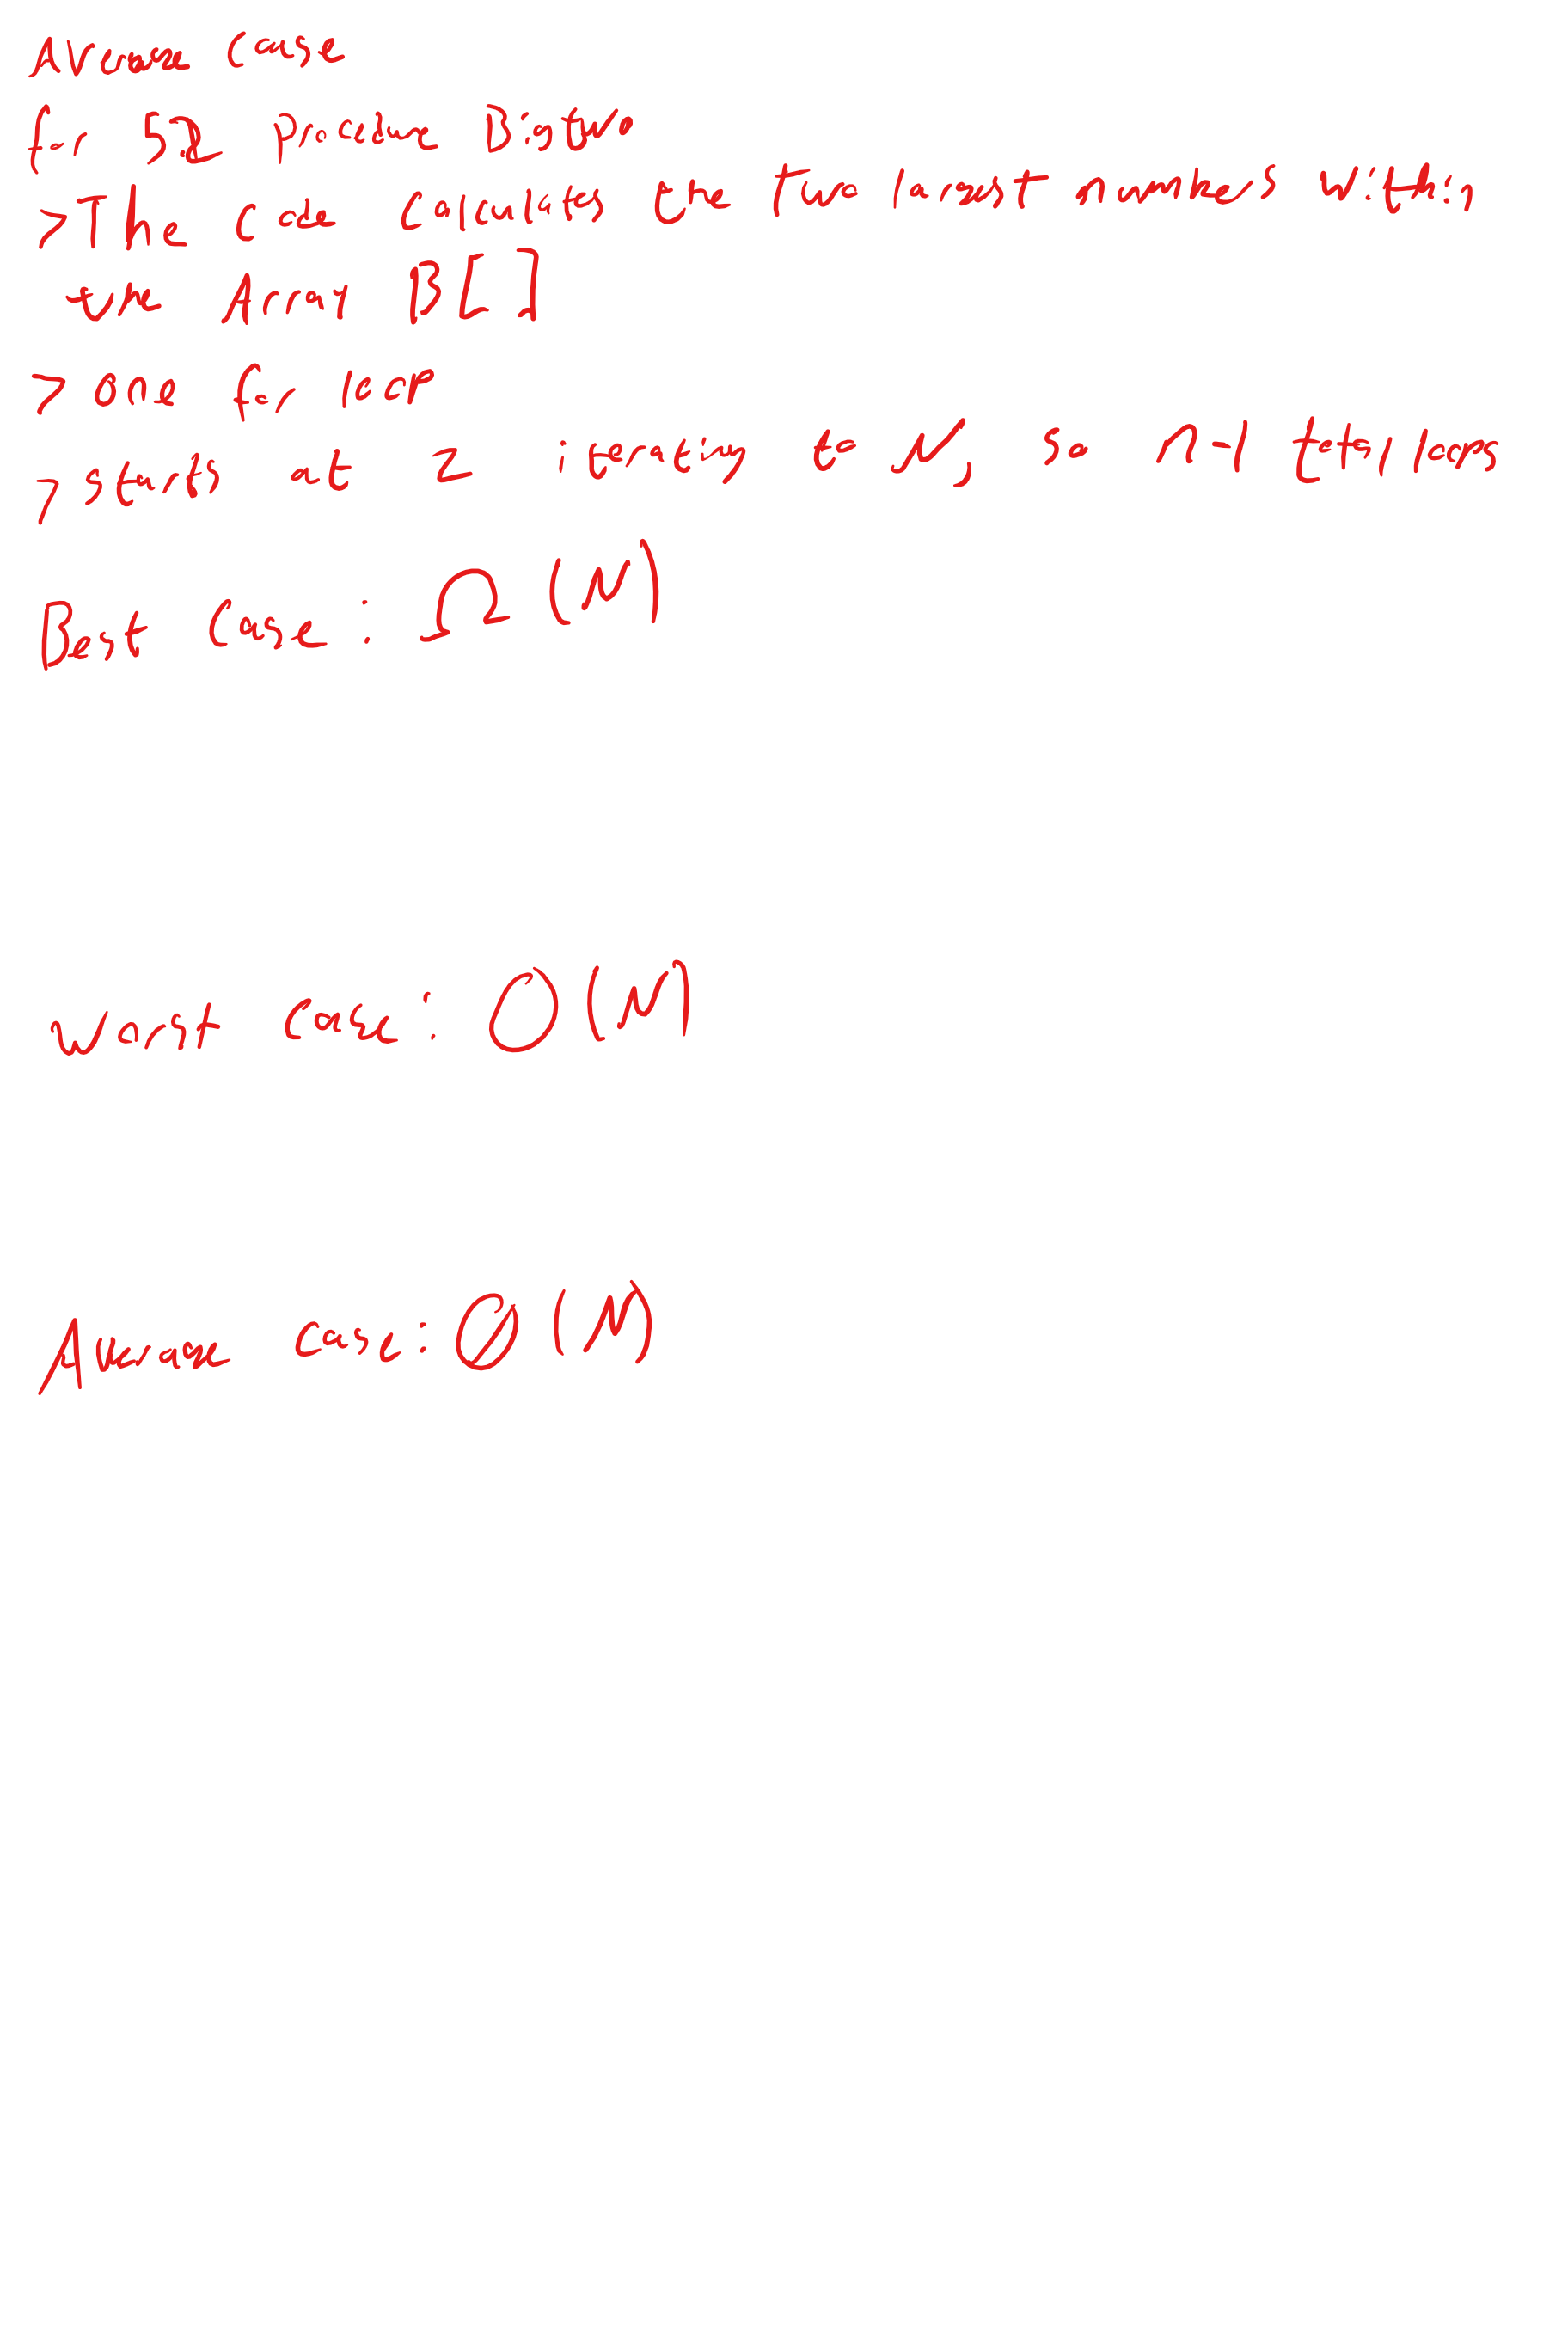 Average Case
for procedure Bigtwo
> The code calculates the two largest numbers within
the Array B[ ]
> one for loop
> starts at 2 iterating to N, so n-1 total loops
Best Case: Ω(N)
Worst Case: O(N)
Average case: Θ(N)